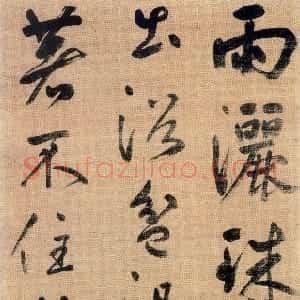 雨灑珠
出浴盆
若不住
Shufaziliao.com